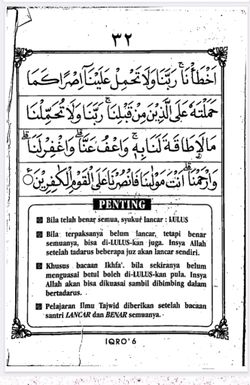 ٣٢
اَخْطَأْنَا ۚ رَبَّنَا وَلَا تَحْمِلْ عَلَيْنَآ اِصْرًا كَمَا
حَمَلْتَهُ عَلَى الَّذِيْنَ مِنْ قَبْلِنَا ۚ رَبَّنَا وَلَا تُحَمِّلْنَا
مَا لَا طَاقَةَ لَنَا بِهٖ ۚ وَاعْفُ عَنَّا ۗ وَاغْفِرْ لَنَا ۗ
وَارْحَمْنَا ۗ اَنْتَ مَوْلٰىنَا فَانْصُرْنَا عَلَى الْقَوْمِ الْكٰفِرِيْنَ
PENTING
Bila telah benar semua, syukur lancar : LULUS
Bila terpaksanya belum lancar, tetapi benar
semuanya, bisa di-LULUS-kan juga. Insya Allah
setelah tadarus beberapa juz akan lancar sendiri.
Khusus bacaan Ikhfa'. bila sekiranya belum
menguasai betul boleh di-LULUS-kan pula. Insya
Allah akan bisa dikuasai sambil dibimbing dalam
bertadarus.
Pelajaran Ilmu Tajwid diberikan setelah bacaan
santri LANCAR dan BENAR semuanya.
IQRO' 6